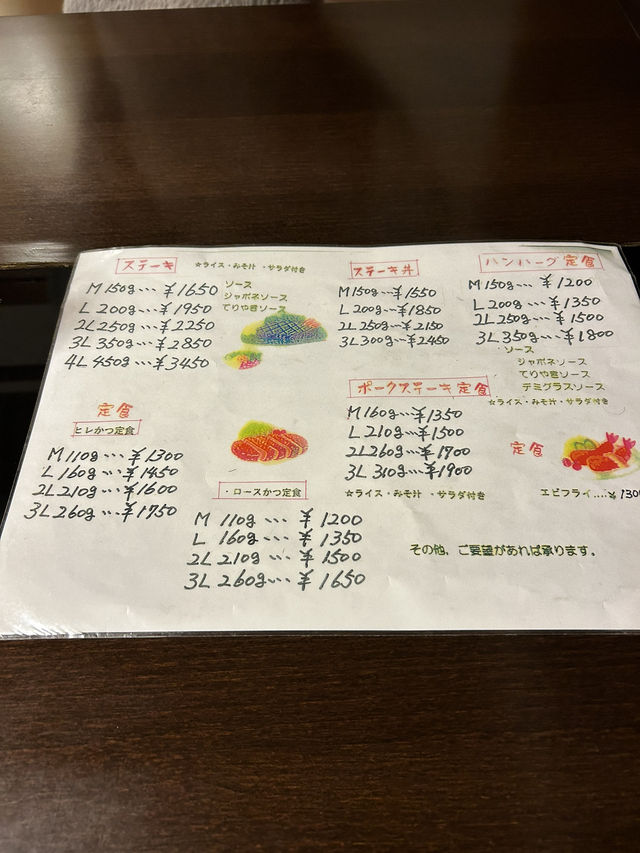 ステーキ
☆ライス・みそ汁・サラダ付き
M 150g…¥1650
L 200g…¥1950
2L 250g…¥2250
3L 350g…¥2850
4L 450g…¥3450
ソース
ジャポネソース
てりやきソース
ステーキ丼
M 150g…¥1550
L 200g…¥1850
2L 250g…¥2150
3L 300g…¥2450
ハンバーグ定食
M 150g…¥1200
L 200g…¥1350
2L 250g…¥1500
3L 350g…¥1800
・ソース
ジャポネソース
てりやきソース
デミグラスソース
☆ライス・みそ汁・サラダ付き
定食
ヒレかつ定食
M 110g…¥1300
L 160g…¥1450
2L 210g…¥1600
3L 260g…¥1750
・ロースかつ定食
M 110g…¥1200
L 160g…¥1350
2L 210g…¥1500
3L 260g…¥1650
ポークステーキ定食
M 160g…¥1350
L 210g…¥1500
2L 260g…¥1700
3L 310g…¥1900
☆ライス・みそ汁・サラダ付き
定食
エビフライ....¥130
その他、ご要望があれば承ります。